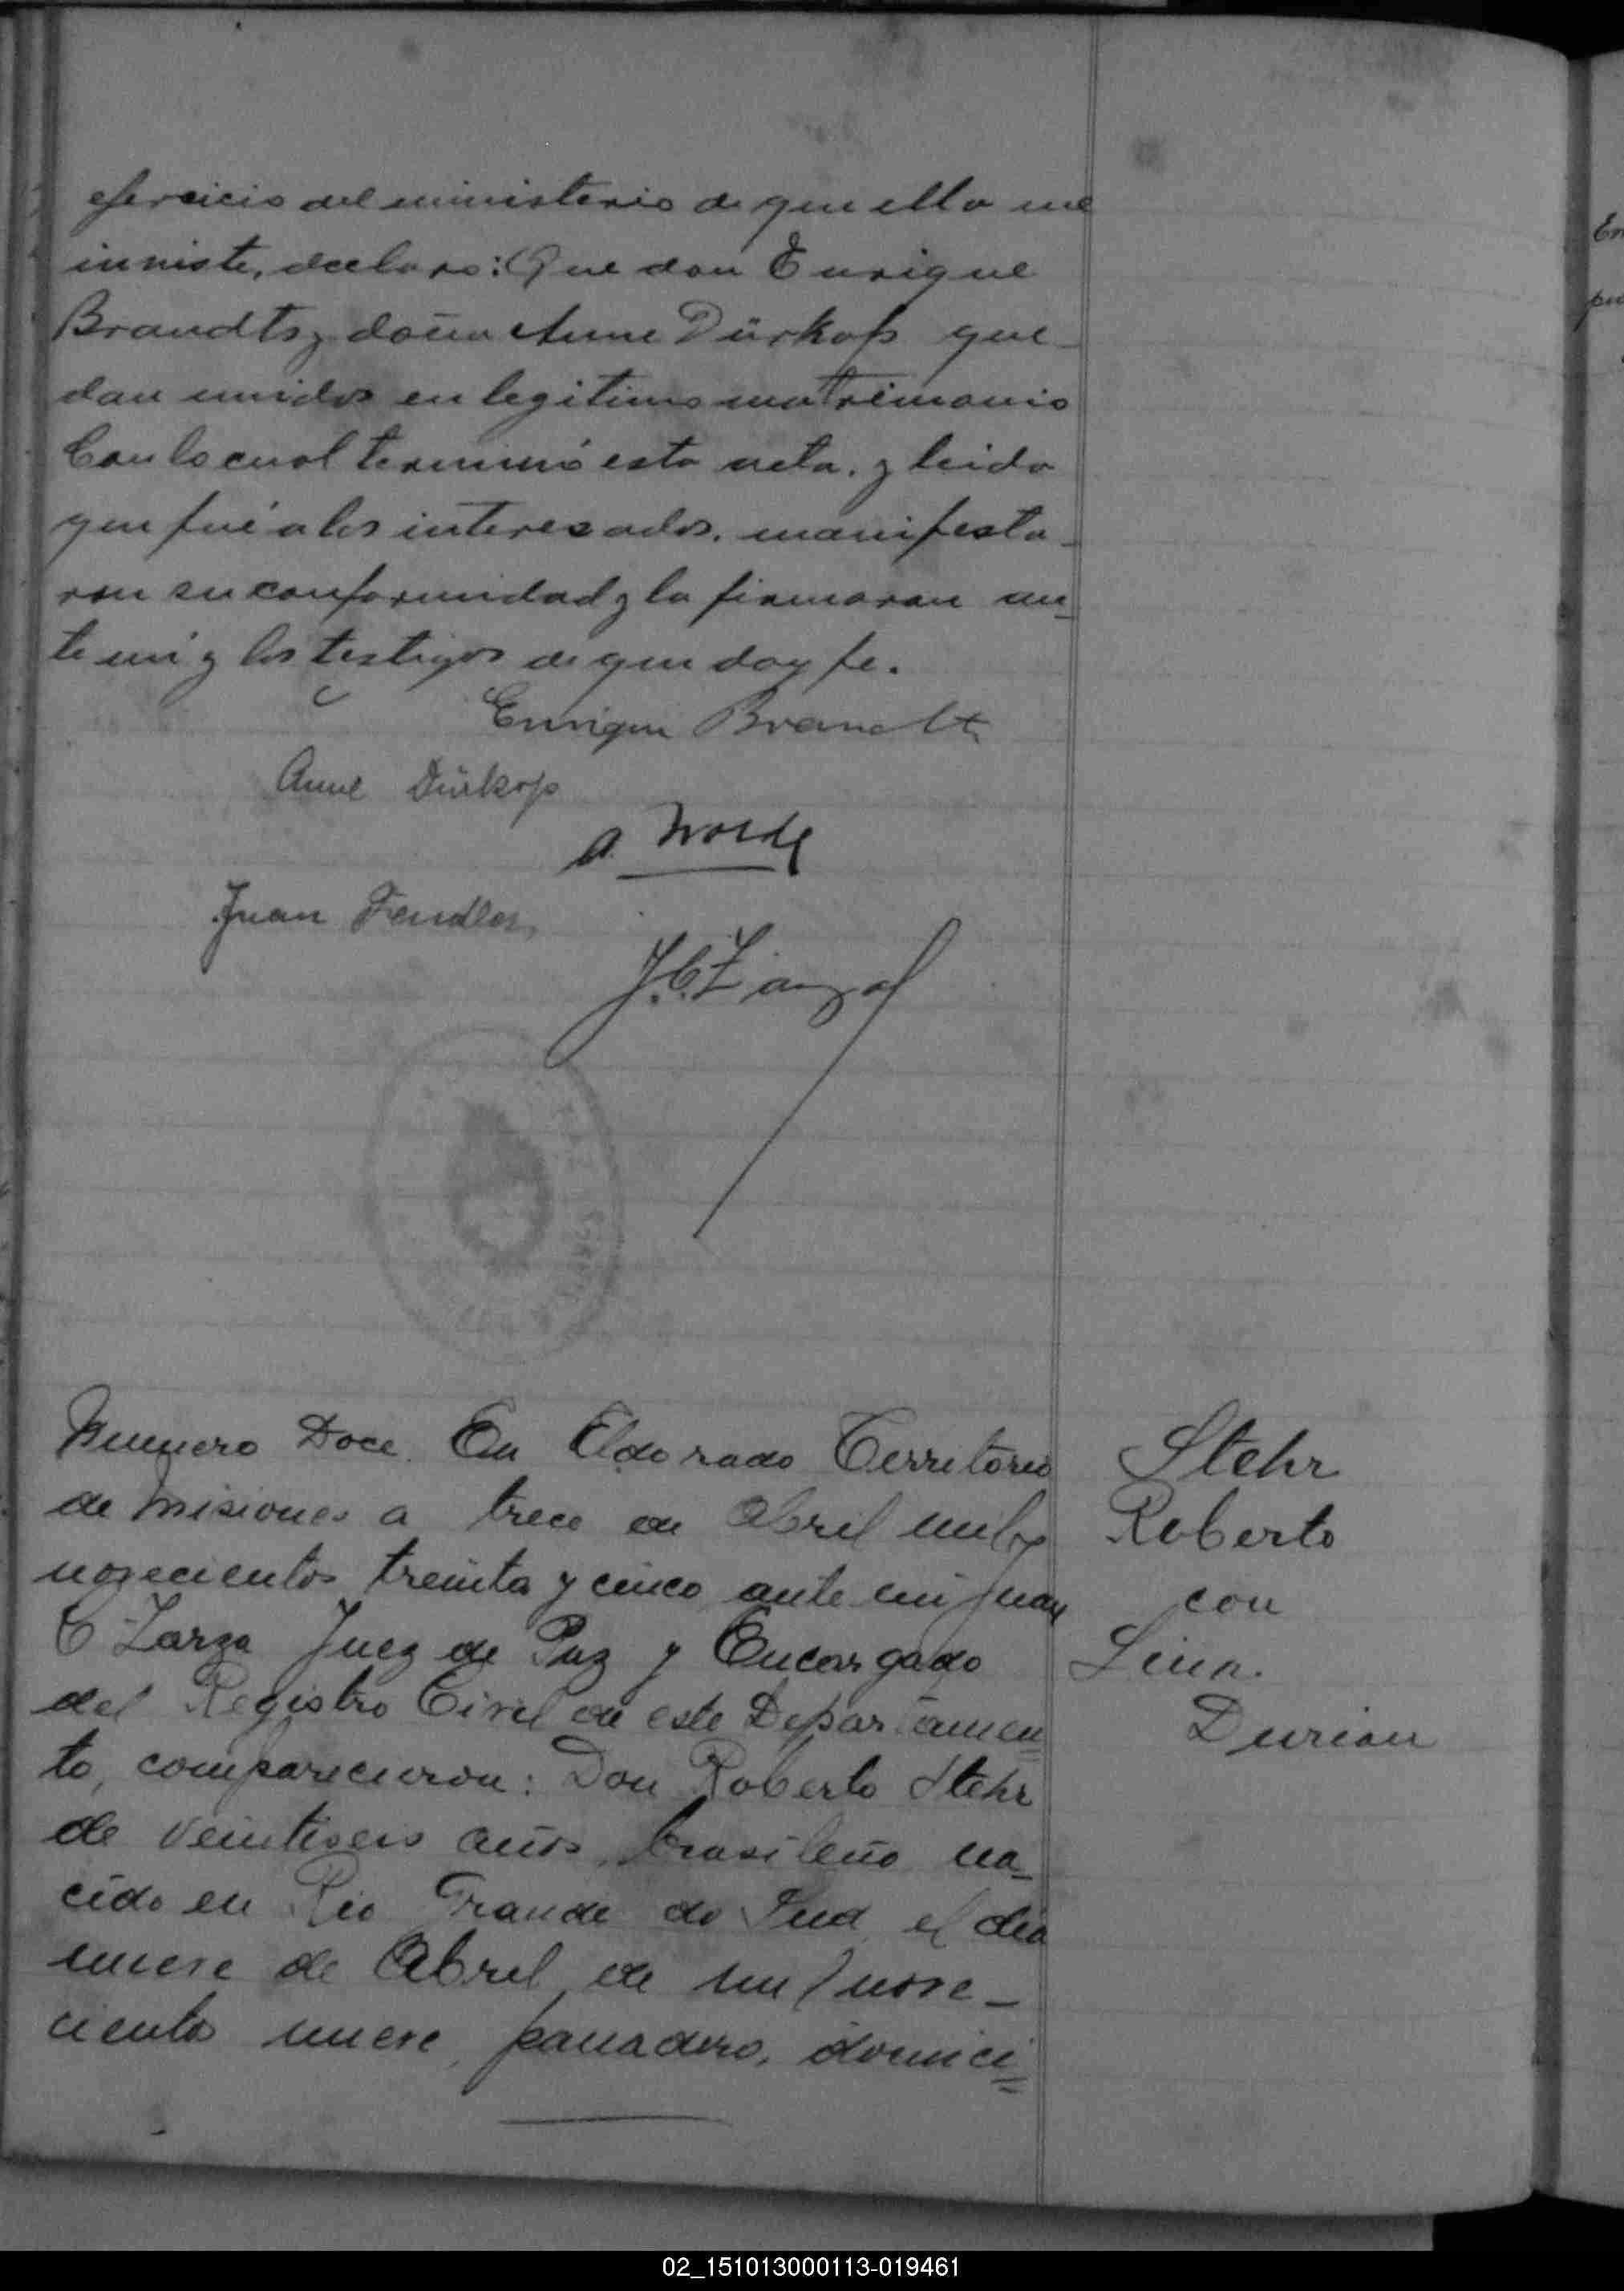 ejercicio del ministerio de que ella me
inviste, declaro: Que don Enrique
Brandts y doña Anne Dürkop que-
dan unidos en legitimo matrimonio
Con lo cual terminó esta acta, y leida
que fué a los interesados, manifesta-
ron su conformidad y la firmaron an-
te mi y los testigos de que doy fe.
Enrique Brandt
Anne Dürkop
A.
Juan Fendler
J.C. Zarza
Numero Doce. En Eldorado Territorio
de Misiones a trece de Abril mil
novecientos treinta y cinco ante mi Juan
C Zarza Juez de Paz y Encargado
del Registro Civil de este Departamen-
to, comparecieron: Don Roberto Stehr
de veintiseis años, brasileño na-
cido en Rio Grande do Sud, el dia
nueve de Abril de mil nove-
ciento nueve, panadero, domici-
Stehr
Roberto
con
Lina.
Durian
02_151013000113-019461